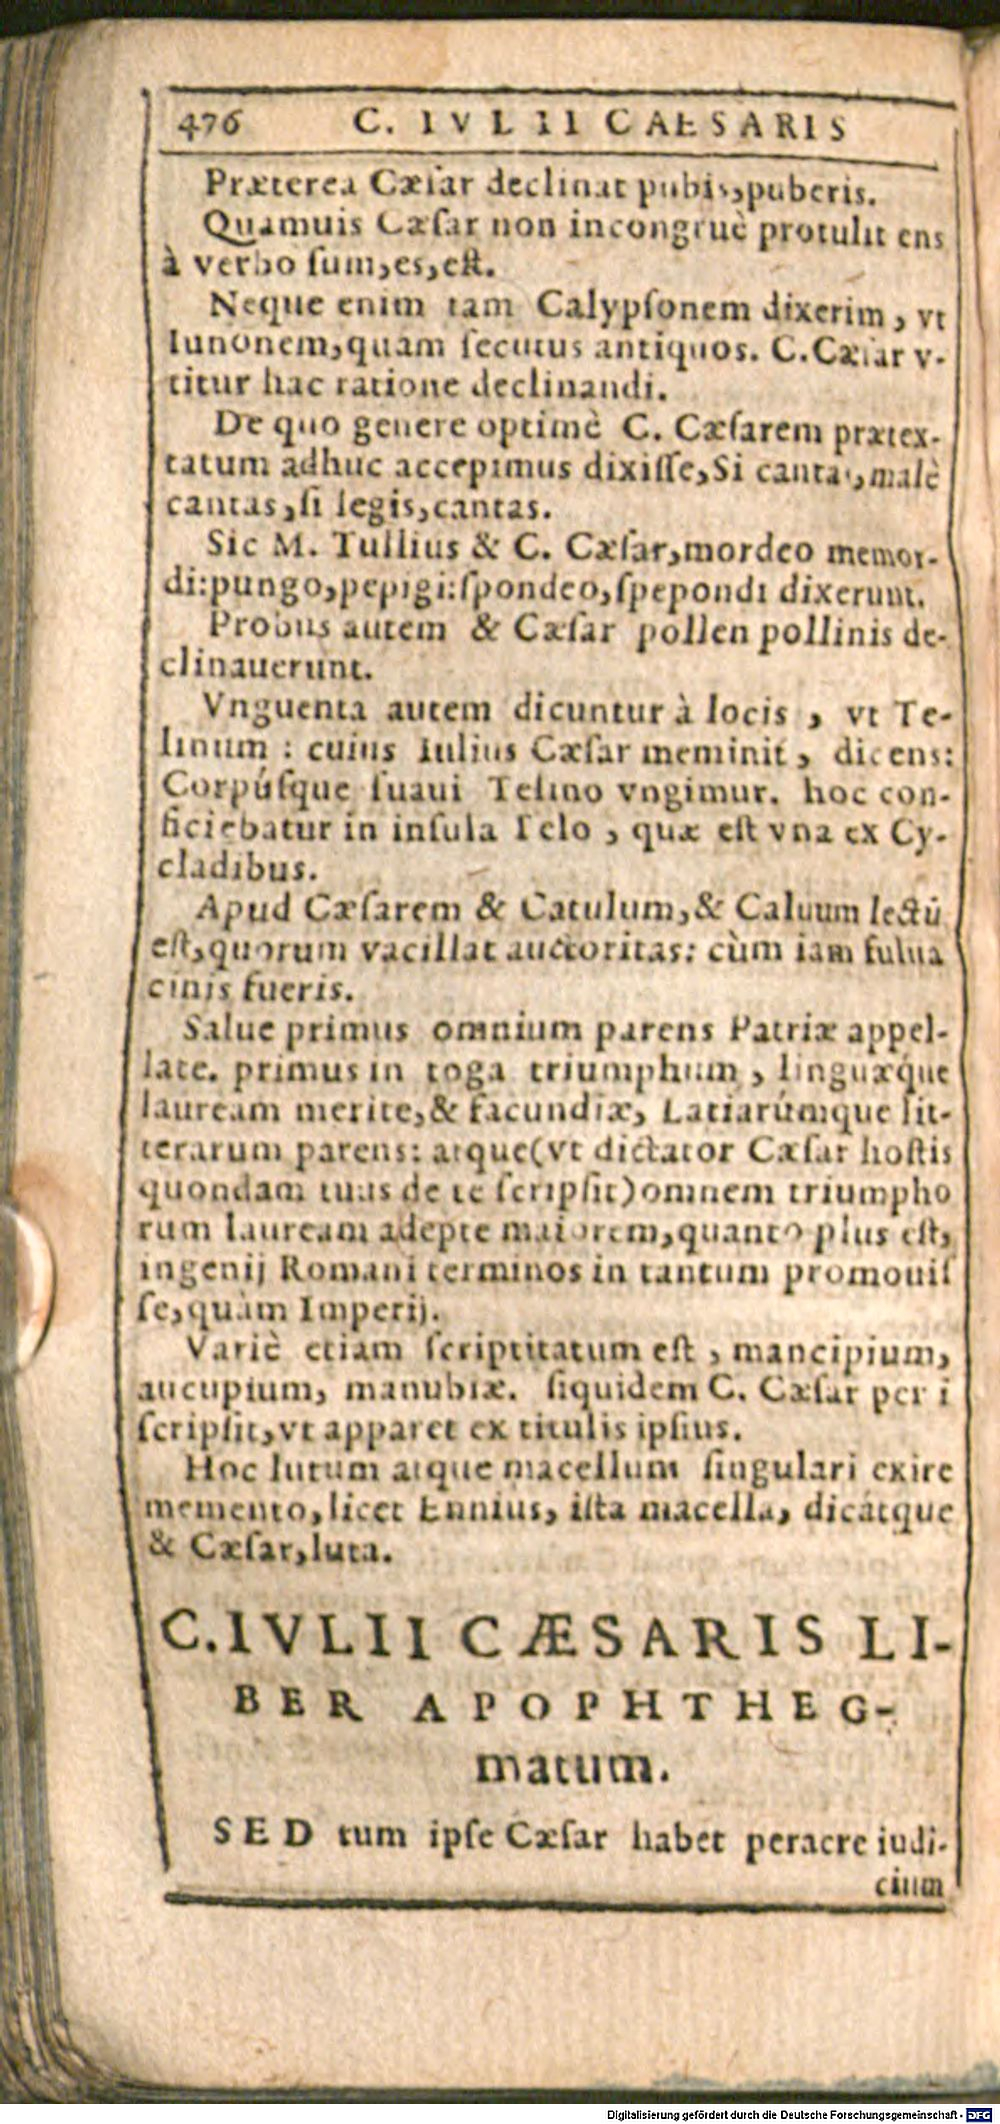 476 C. IVLII CAESARIS
Præterea Cæsar declinat pubis,puberis.
Quamuis Cæſar non incongruè protulit ens
à verbo ſum,es,eſt.
Neque enim tam Calypſonem dixerim, vt
Iunonem,quam ſecutus antiquos. C.Cæſar v-
titur hac ratione declinandi.
De quo genere optimè C. Cæſarem prætex-
tatum adhuc accepimus dixiſſe,Si cantas,malè
cantas,ſi legis,cantas.
Sic M. Tullius & C. Cæſar,mordeo memor-
di:pungo,pepigi:ſpondeo,ſpepondi dixerunt.
Probus autem & Cæſar pollen pollinis de-
clinauerunt.
Vnguenta autem dicuntur à locis, vt Te-
linum : cuius Iulius Cæſar meminit, dicens:
Corpúſque ſuaui Telino vngimur. hoc con-
ficiebatur in inſula Telo, quæ eſt vna ex Cy-
cladibus.
Apud Cæſarem & Catulum,& Caluum lectū
eſt,quorum vacillat auctoritas: cùm iam fulua
cinis fueris.
Salue primus omnium parens Patriæ appel-
late. primus in toga triumphum, linguæque
lauream merite,& facundiæ, Latiarúmque lit-
terarum parens: atque(vt dictator Cæſar hoſtis
quondam tuus de te ſcripſit)omnem triumpho
rum lauream adepte maiorem,quanto plus eſt,
ingenij Romani terminos in tantum promouiſ
ſe,quàm Imperij.
Variè etiam ſcriptitatum eſt, mancipium,
aucupium, manubiæ. ſiquidem C. Cæſar per i
ſcripſit,vt apparet ex titulis ipſius.
Hoc lutum atque macellum ſingulari exire
memento,licet Ennius, iſta macella, dicátque
& Cæſar,luta.
C.IVLII CÆSARIS LI-
BER APOPHTHEG-
matum.
SED tum ipſe Cæſar habet peracre iudi-
cium
Digitalisierung gefördert durch die Deutsche Forschungsgemeinschaft - DFG